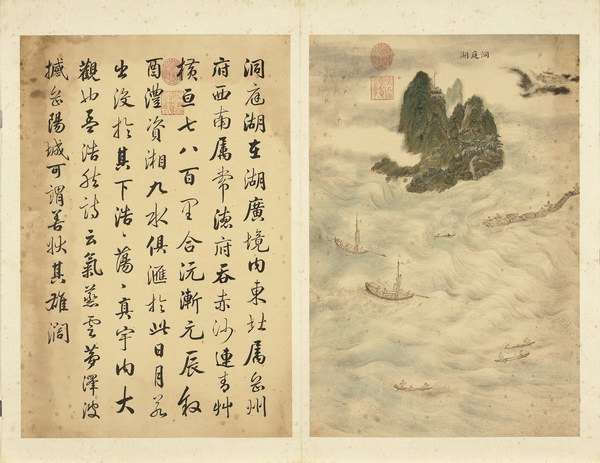 洞庭湖
洞庭湖在湖廣境内東北属岳州
府西南属常德府吞赤沙連青艸
橫亘七八百里合沅漸元辰敘
酉澧資湘九水俱滙於此日月若
出没於其下浩〻蕩〻真宇内大
觀也孟浩然詩云氣蒸雲夢澤波
撼岳陽城可謂善狀其雄濶